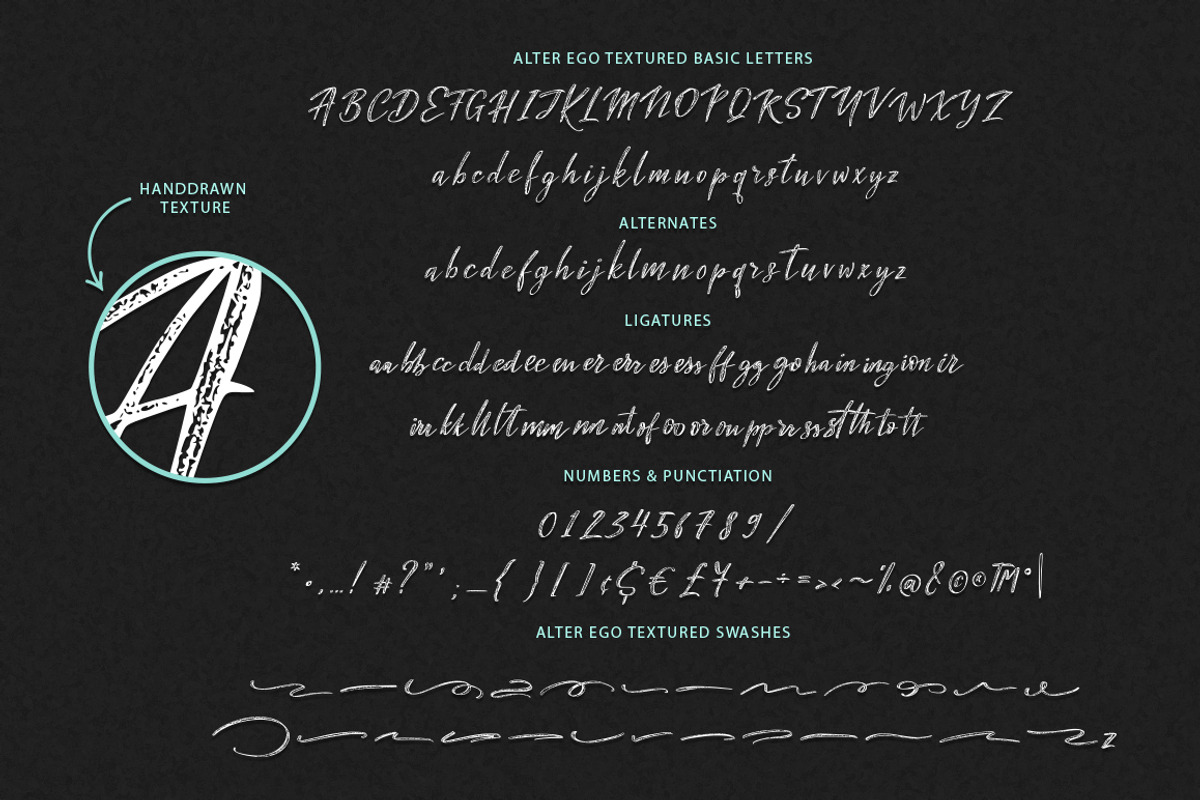 ALTER EGO TEXTURED BASIC LETTERS
ABCDEFGHIJKLMNOPQRSTUVWXYZ
abcdefghijklmnopqrstuvwxyz
HANDDRAWN
TEXTURE
ALTERNATES
abcdefghijklmnopqrstuvwxyz
A
LIGATURES
aa bb cc dd ed ee en er err es ess ff gg go ha in ing ion ir
irr kk ll lt mm nn nt of oo or ou pp rr ss st th to tt
NUMBERS & PUNCTIATION
0123456789/
*.,...!#?"';_{}[]¢$€£¥+-÷=><~%@&©®™°|
ALTER EGO TEXTURED SWASHES